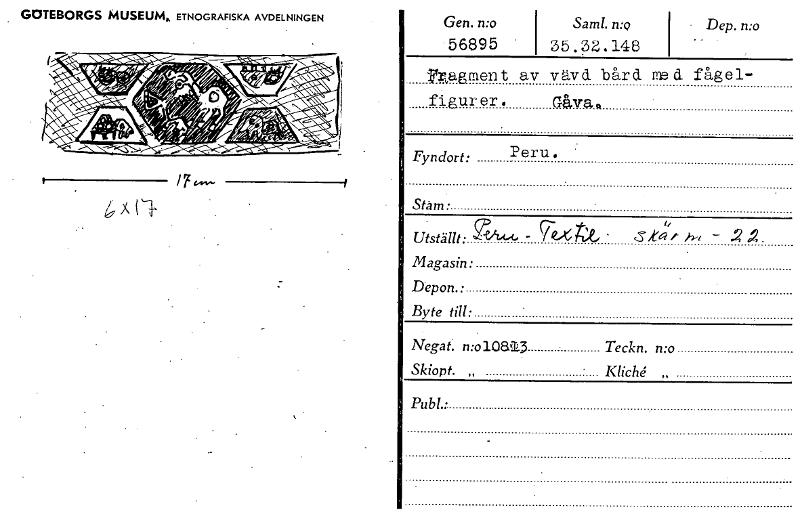 GÖTEBORGS MUSEUM, ETNOGRAFISKA AVDELNINGEN
17 cm
6x17
Gen. n:o Saml. n:o Dep. n:o
56895 35.32.148
Fragment av vävd bård med fågel-
figurer. Gåva.
Fyndort: Peru.
Stam:
Utställt: Peru - Textil. skärm - 22.
Magasin:
Depon.:
Byte till:
Negat. n:o 10813 Teckn. n:o
Skiopt. „ Kliché „
Publ.: